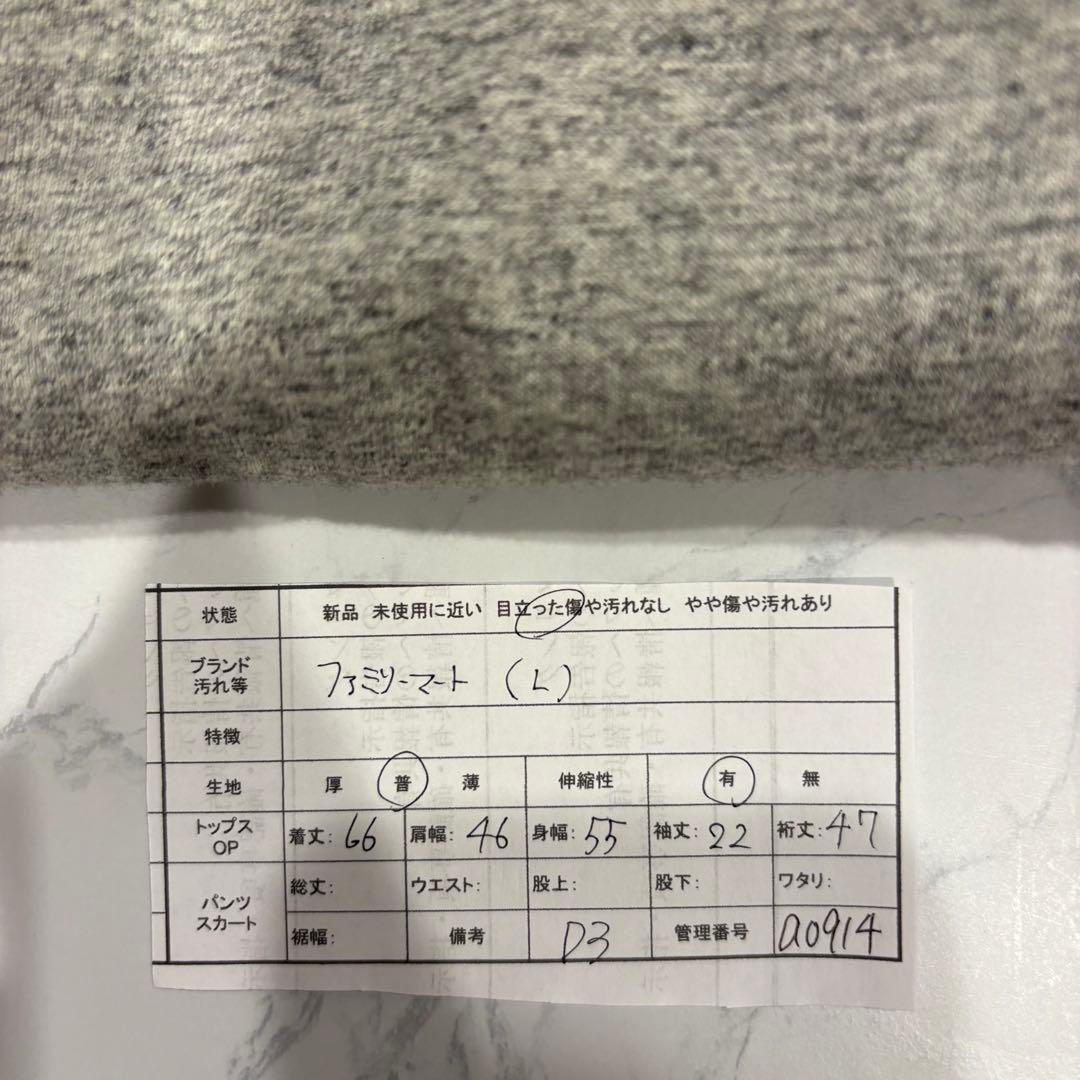 状態 新品 未使用に近い 目立った傷や汚れなし やや傷や汚れあり
ブランド
汚れ等
ファミリーマート (L)
特徴
生地 厚 普 薄 伸縮性 有 無
トップス
OP
着丈: 66 肩幅: 46 身幅: 55 袖丈: 22 裄丈: 47
パンツ
スカート
総丈: ウエスト: 股上: 股下: ワタリ:
裾幅: 備考 D3 管理番号 a0914